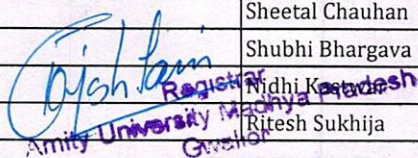 Sheetal Chauhan
Shubhi Bhargava
Nidhi
Registrar
Ritesh Sukhija
Amity University Madhya Pradesh
Gwalior